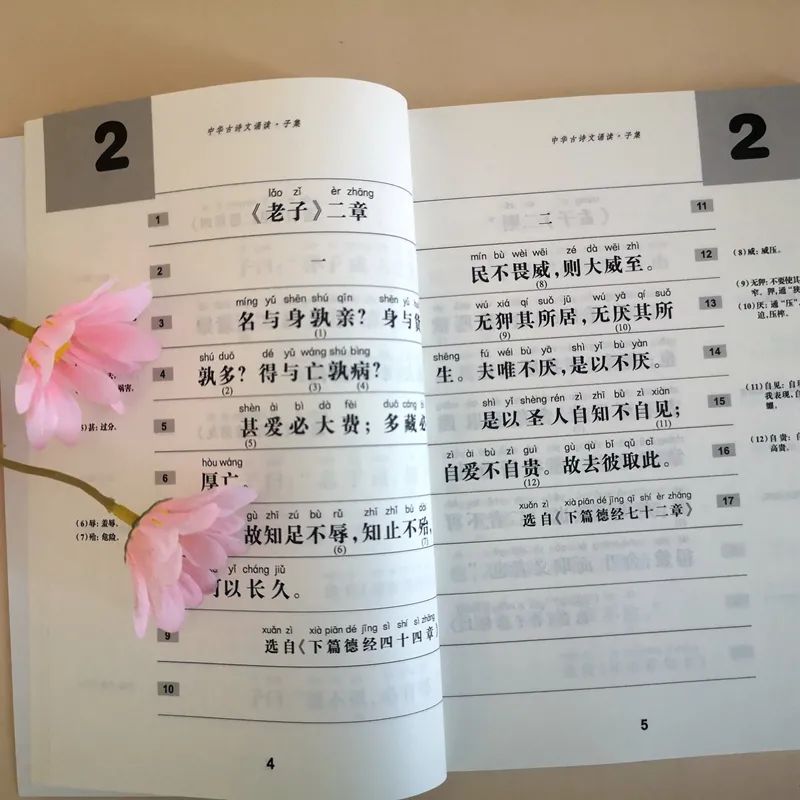 2
中华古诗文诵读·子集
lǎo zǐ èr zhāng
1 《老子》二章
2 一
míng yǔ shēn shú qīn shēn yǔ
3 名与身孰亲？身与货
(1)
shú duō dé yǔ wáng shú bìng
4 孰多？得与亡孰病？
(2) (3) (4)
shèn ài bì dà fèi duō cáng
5 甚爱必大费；多藏必
(5)
hòu wáng
6 厚亡。
gù zhī zú bù rǔ zhī zhǐ bú dài
故知足不辱，知止不殆，
(6) (7)
yǐ cháng jiǔ
可以长久。
xuǎn zì xià piān dé jīng sì shí sì zhāng
9 选自《下篇德经四十四章》
10
病害。
(5)甚：过分。
(6)辱：羞辱。
(7)殆：危险。
4
中华古诗文诵读·子集
2
二 11
mín bù wèi wēi zé dà wēi zhì
民不畏威，则大威至。 12
(8)
wú xiá qí suǒ jū wú yā qí suǒ
无狎其所居，无厌其所 13
(9) (10)
shēng fú wéi bù yā shì yǐ bù yàn
生。夫唯不厌，是以不厌。 14
shì yǐ shèng rén zì zhī bù zì xiàn
是以圣人自知不自见； 15
(11)
zì ài bù zì guì gù qù bǐ qǔ cǐ
自爱不自贵。故去彼取此。 16
(12)
xuǎn zì xià piān dé jīng qī shí èr zhāng
选自《下篇德经七十二章》 17
(8)威：威压。
(9)无狎：不要使其
窄。狎，通“狭
(10)厌：通“压”，
迫，压榨。
(11)自见：自
我表现，自
(12)自贵：自
高贵。
5